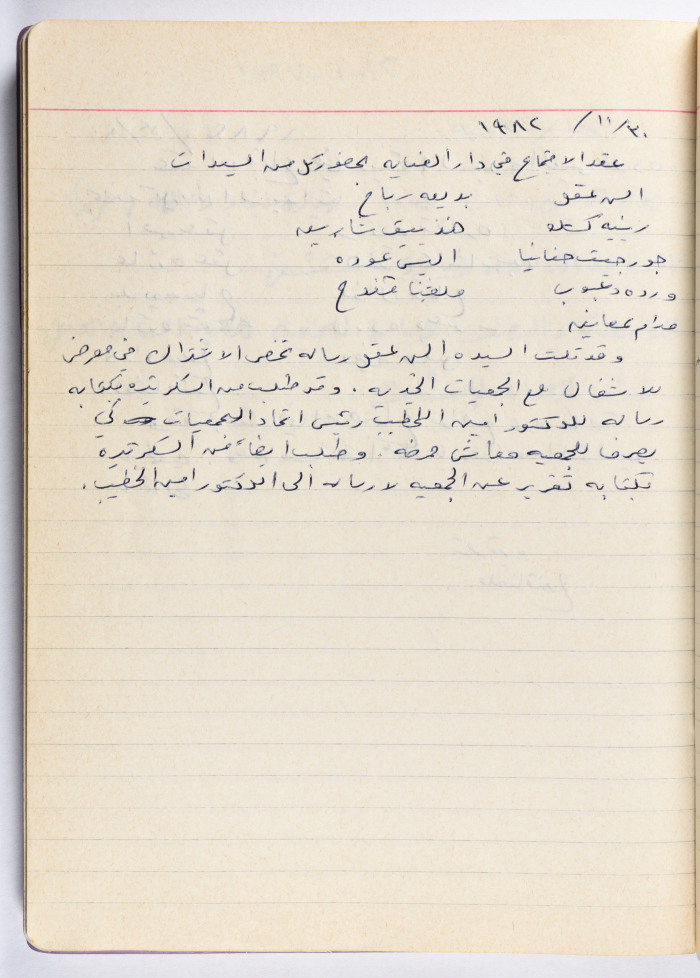 ٣٠/ ١١/ ١٩٨٢
عقد الاجتماع في دار العنايه بحضور كل من السيدات
الن عقل بديعه رباح
رينيه كستلو هنرييت شاريه
جورجيت حنانيا اليس عوده
ورده دعبوب ملفينا قندح
مدام معاينه
وقد تلت السيده الن عقل رساله تخص الاشتراك في معرض
للاشغال مع الجمعيات الخيريه. وقد طلب من السكرتيره بكتابه
رساله للدكتور امين الخطيب رئيس اتحاد الجمعيات كي
يصرف للجمعيه معاش ممرضه. وطلب ايضا من السكرتيره
بكتابه تقرير عن الجمعيه لارساله الى الدكتور امين الخطيب.